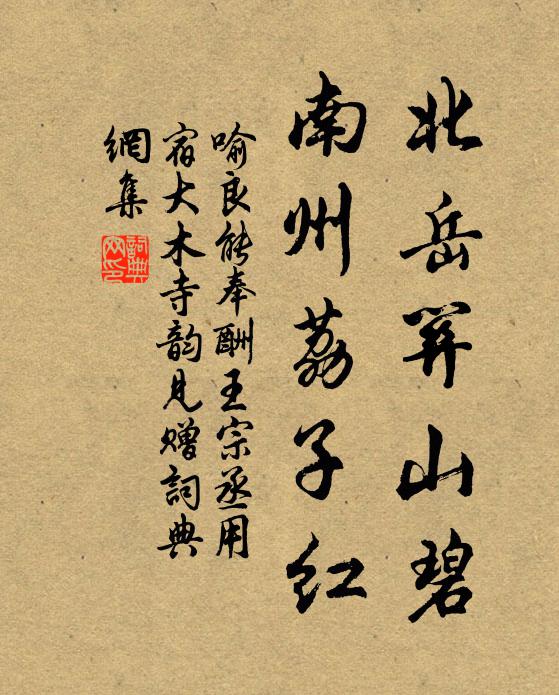 北岳開山碧
南州荔子紅
喻良能奉酬王宗丞用
宿大木寺韵見贈詞典
網集
詞典
网印